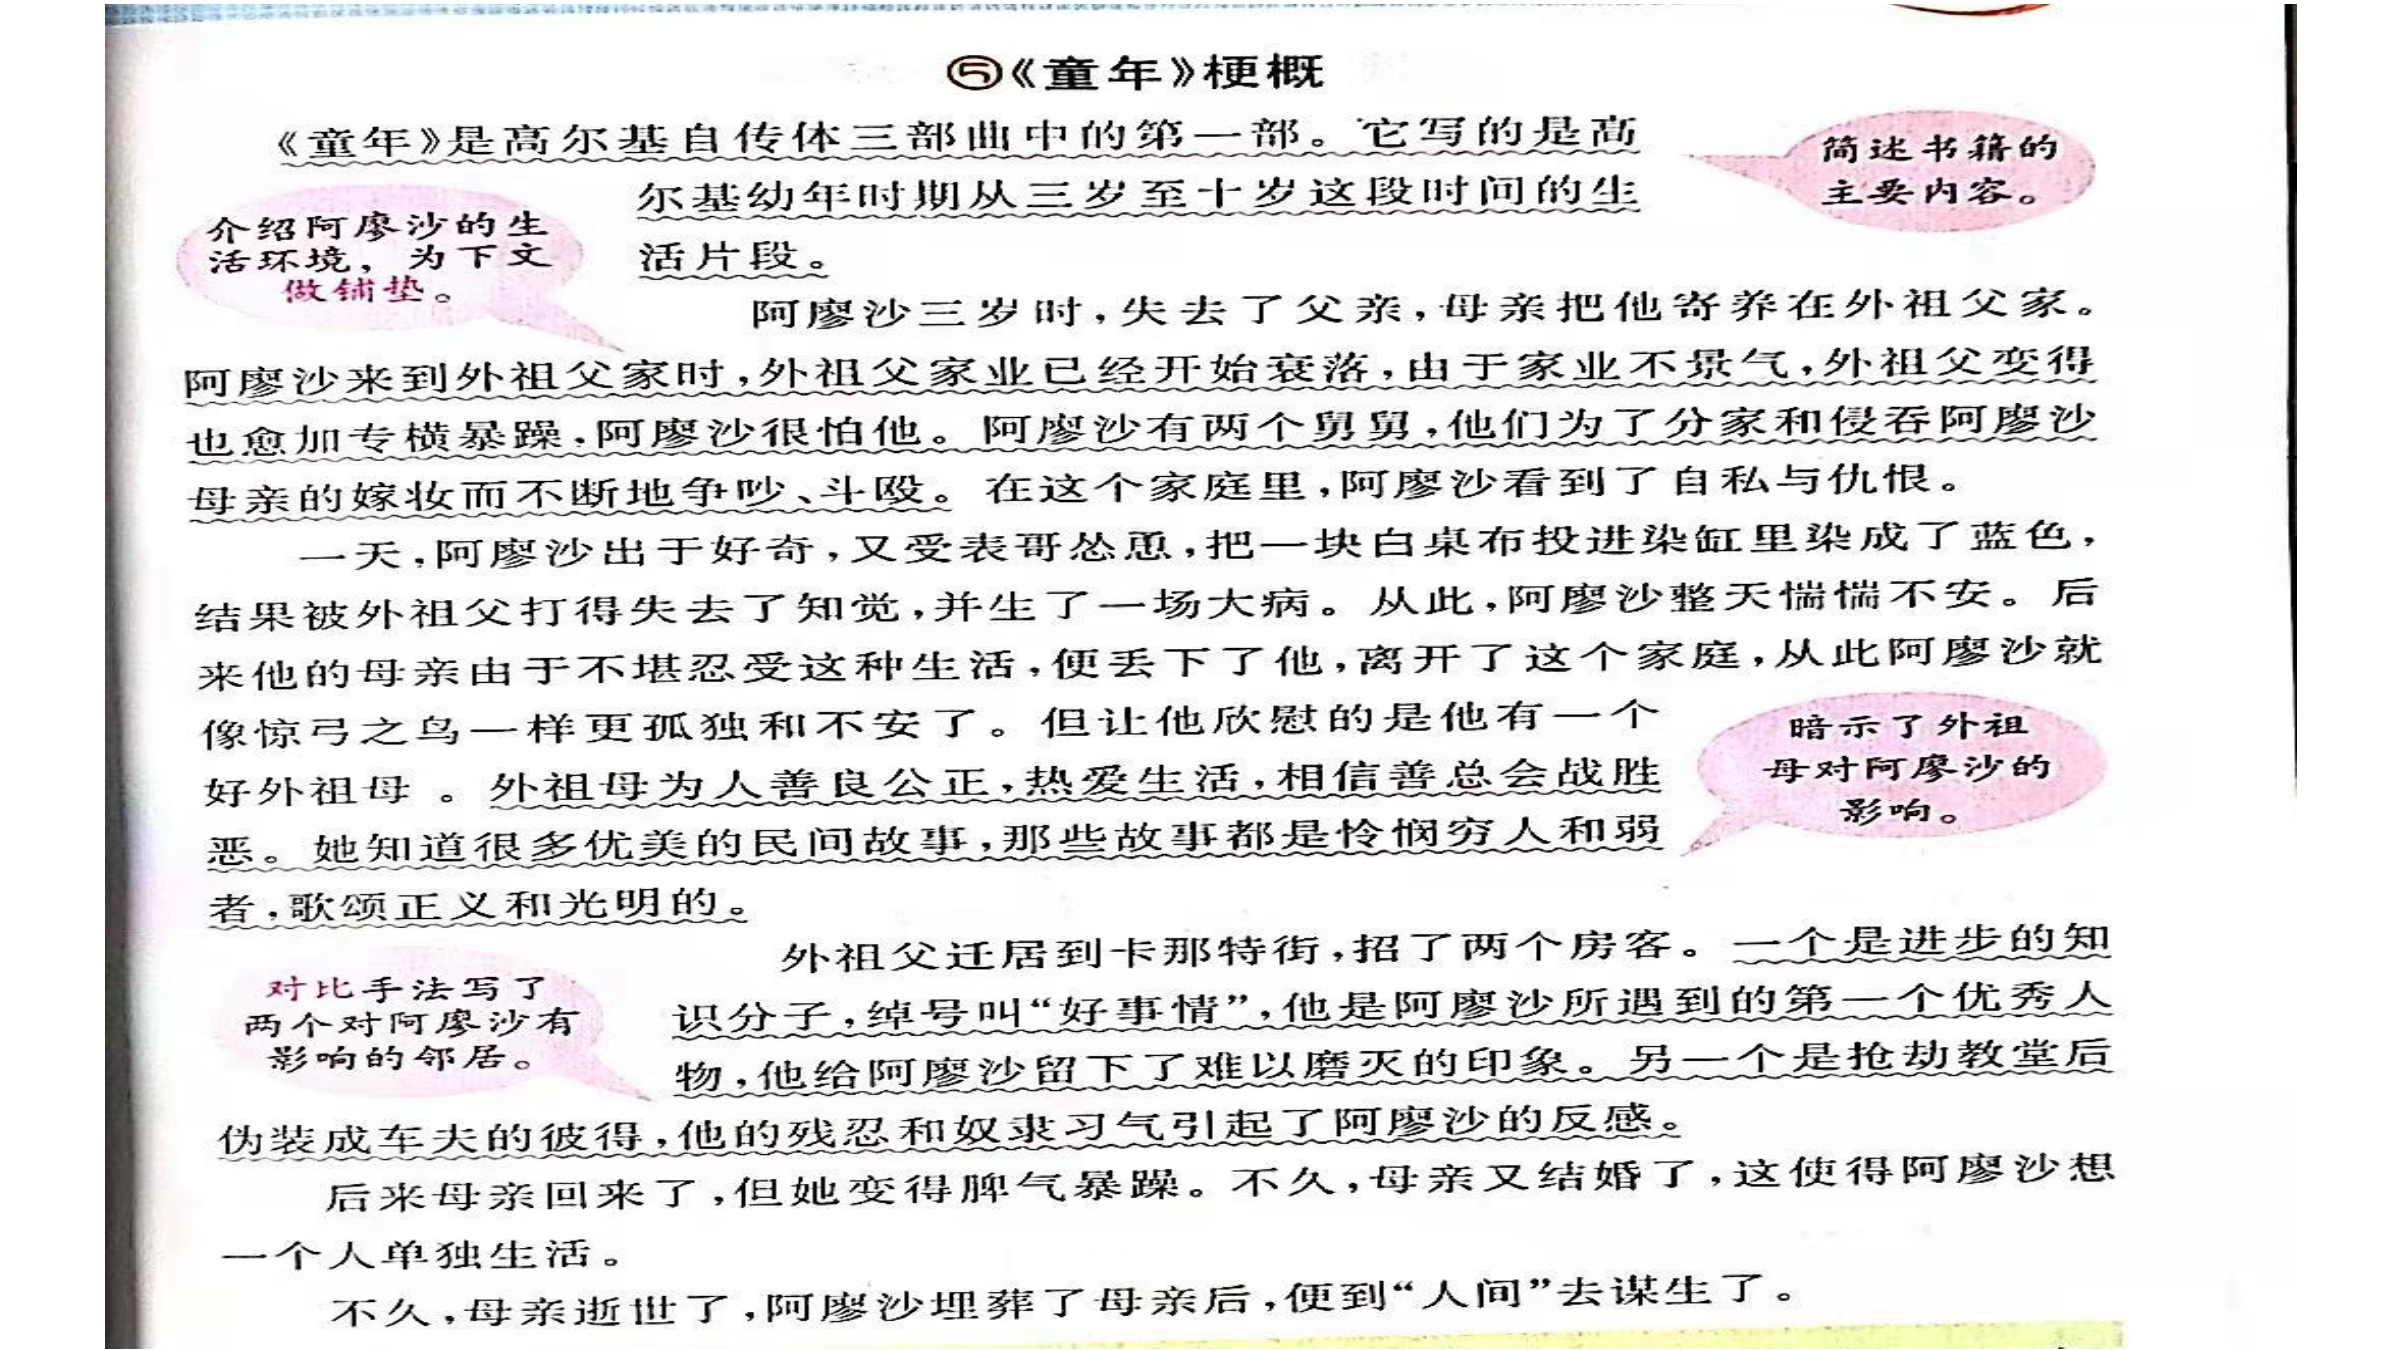 ⑤《童年》梗概
《童年》是高尔基自传体三部曲中的第一部。它写的是高
简述书籍的
主要内容。
尔基幼年时期从三岁至十岁这段时间的生
活片段。
介绍阿廖沙的生
活环境，为下文
做铺垫。
阿廖沙三岁时,失去了父亲,母亲把他寄养在外祖父家。
阿廖沙来到外祖父家时,外祖父家业已经开始衰落,由于家业不景气,外祖父变得
也愈加专横暴躁,阿廖沙很怕他。阿廖沙有两个舅舅,他们为了分家和侵吞阿廖沙
母亲的嫁妆而不断地争吵、斗殴。在这个家庭里,阿廖沙看到了自私与仇恨。
一天,阿廖沙出于好奇,又受表哥怂恿,把一块白桌布投进染缸里染成了蓝色,
结果被外祖父打得失去了知觉,并生了一场大病。从此,阿廖沙整天惴惴不安。后
来他的母亲由于不堪忍受这种生活,便丢下了他,离开了这个家庭,从此阿廖沙就
像惊弓之鸟一样更孤独和不安了。但让他欣慰的是他有一个
好外祖母 。外祖母为人善良公正,热爱生活,相信善总会战胜
恶。她知道很多优美的民间故事,那些故事都是怜悯穷人和弱
者,歌颂正义和光明的。
暗示了外祖
母对阿廖沙的
影响。
外祖父迁居到卡那特街,招了两个房客。一个是进步的知
识分子,绰号叫“好事情”,他是阿廖沙所遇到的第一个优秀人
物,他给阿廖沙留下了难以磨灭的印象。另一个是抢劫教堂后
对比手法写了
两个对阿廖沙有
影响的邻居。
伪装成车夫的彼得,他的残忍和奴隶习气引起了阿廖沙的反感。
后来母亲回来了,但她变得脾气暴躁。不久,母亲又结婚了,这使得阿廖沙想
一个人单独生活。
不久,母亲逝世了,阿廖沙埋葬了母亲后,便到“人间”去谋生了。